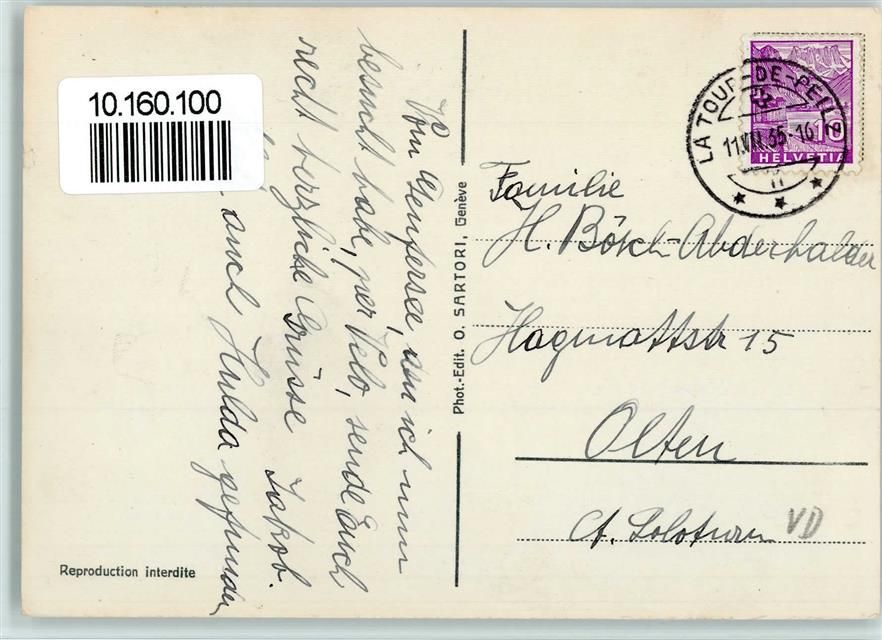 10.160.100
Vom Genfersee, den ich nun
besucht habe, per Velo, sende Euch
recht herzliche Grüsse Jakob.
auch Hulda gefunden
Reproduction interdite
Phot.-Edit. O. SARTORI, Genève
LA TOUR-DE-PEILZ
11.VIII.35-16
10
HELVETIA
Familie
H. Bösch-Abderhalden
Hagmattstr 15
Olten
Ct. Soloturn
VD